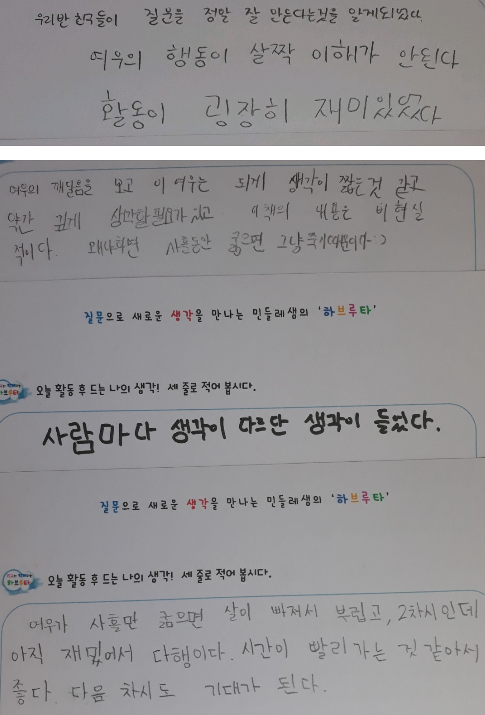 우리반 친구들이 질문을 정말 잘 만든다는것을 알게되었다.
여우의 행동이 살짝 이해가 안된다
활동이 굉장히 재미있었다
여우의 깨달음을 보고 이 여우는 되게 생각이 짧은것 같고
약간 깊게 생각할 필요가 있고 이 책의 내용은 비현실
적이다. 왜냐하면 사흘동안 굶으면 그냥 죽기때문이다:)
질문으로 새로운 생각을 만나는 민들레샘의 '하브루타'
오늘 활동 후 드는 나의 생각! 세 줄로 적어 봅시다.
사람마다 생각이 다르단 생각이 들었다.
질문으로 새로운 생각을 만나는 민들레샘의 '하브루타'
하브루타
오늘 활동 후 드는 나의 생각! 세 줄로 적어 봅시다.
여우가 사흘만 굶으면 살이 빠져서 부럽고, 2차시인데
아직 재밌어서 다행이다. 시간이 빨리가는 것 같아서
좋다. 다음 차시도 기대가 된다.